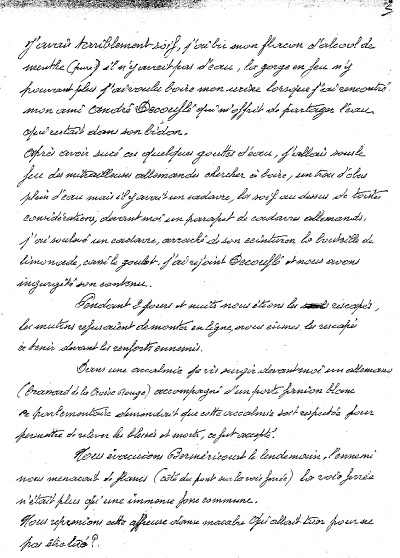 J'avais terriblement soif, j'ai bu mon flacon d'alcool de
menthe (pur) il n'y avait pas d'eau, la gorge en feu n'y
pouvant plus j'ai voulu boire mon urine lorsque j'ai rencontré
mon ami André Decouflé qui m'offrit de partager l'eau
qui restait dans son bidon.
Après avoir sucé ces quelques gouttes d'eau, j'allais sous le
feu des mitrailleuses allemandes chercher à boire, un trou d'obus
plein d'eau mais il y avait un cadavre, la soif au dessus de toutes
considérations, devant moi un parapet de cadavres allemands.
j'ai soulevé un cadavre, arraché de son ceinturon la bouteille de
limonade, cassé le goulot. j'ai rejoint Decouflé et nous avons
ingurgité son contenu.
Pendant 2 jours et nuits nous étions les rescapés,
les mutins refusaient de monter en ligne, nous eûmes, les rescapés
à tenir devant les renforts ennemis.
Dans une accalmie je vis surgir devant moi un allemand
(brancard de la Croix Rouge) accompagné d'un porte fanion blanc
ce parlementaire demandait que cette accalmie soit respectée pour
permettre de relever les blessés et morts, ce fut accepté.
Nous évacuions Berméricourt le lendemain, l'ennemi
nous menaçait de flancs (côté du pont sur la voie ferrée) la voie ferrée
n'était plus qu'une immense fosse commune.
Nous reprenions cette affreuse danse macabre Qui allait tuer pour ne
pas être tué ?.